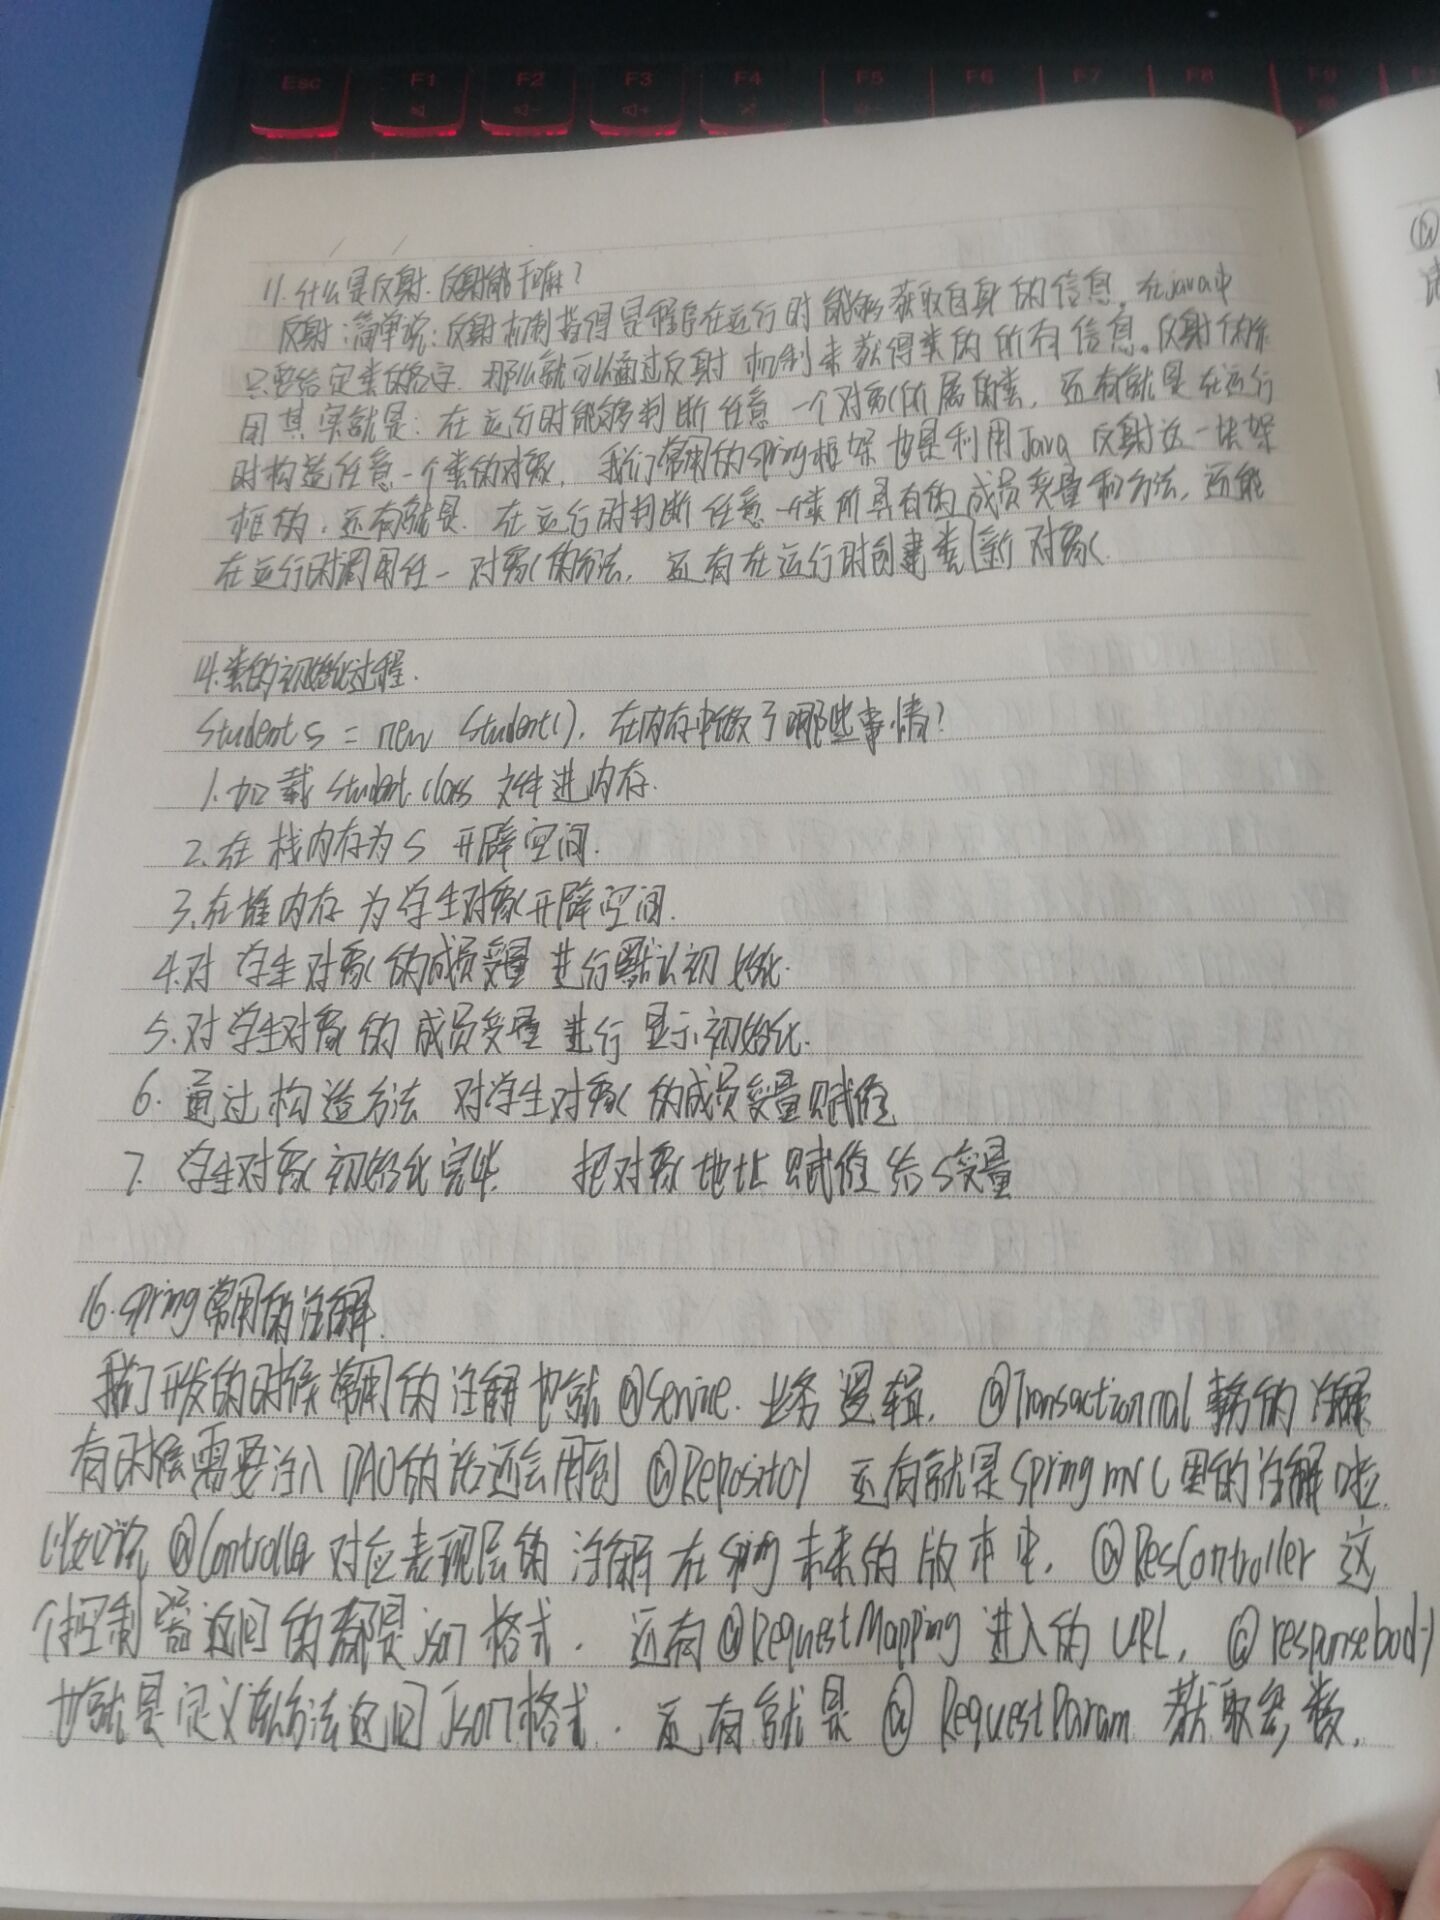 Esc F1 F2 F3 F4 F5 F6 F7 F8 F9
11.什么是反射.反射能干嘛?
反射:简单说:反射机制指得是程序在运行时能够获取自身的信息。在java中
只要给定类的名字.那么就可以通过反射机制来获得类的所有信息。反射的作
用其实就是:在运行时能够判断任意一个对象所属的类,还有就是在运行
时构造任意一个类的对象,我们常用的spring框架也是利用Java反射这一块架
框的,还有就是.在运行时判断任意一个类所具有的成员变量和方法,还能
在运行时调用任一对象的方法,还有在运行时创建类新对象.
14.类的初始化过程.
Student s = new Student(),在内存中做了哪些事情?
1.加载Student.class文件进内存.
2.在栈内存为s开辟空间.
3.在堆内存为学生对象开辟空间.
4.对学生对象的成员变量进行默认初始化.
5.对学生对象的成员变量进行显示初始化.
6.通过构造方法对学生对象的成员变量赋值
7.学生对象初始化完毕.把对象地址赋值给s变量
16.spring常用的注解.
我们开发的时候常用的注解也就@Service.业务逻辑,@Transactionnal事务的注解
有时候需要注入DAO的话还会用到@Repository还有就是spring mvc里的注解啦.
比如说@Controller对应表现层的注解在spring未来的版本中,@ResController这
个控制器返回的都是json格式.还有@RequestMapping进入的URL,@responsebody
也就是定义该方法返回Json格式.还有就是@RequestParam获取参数,